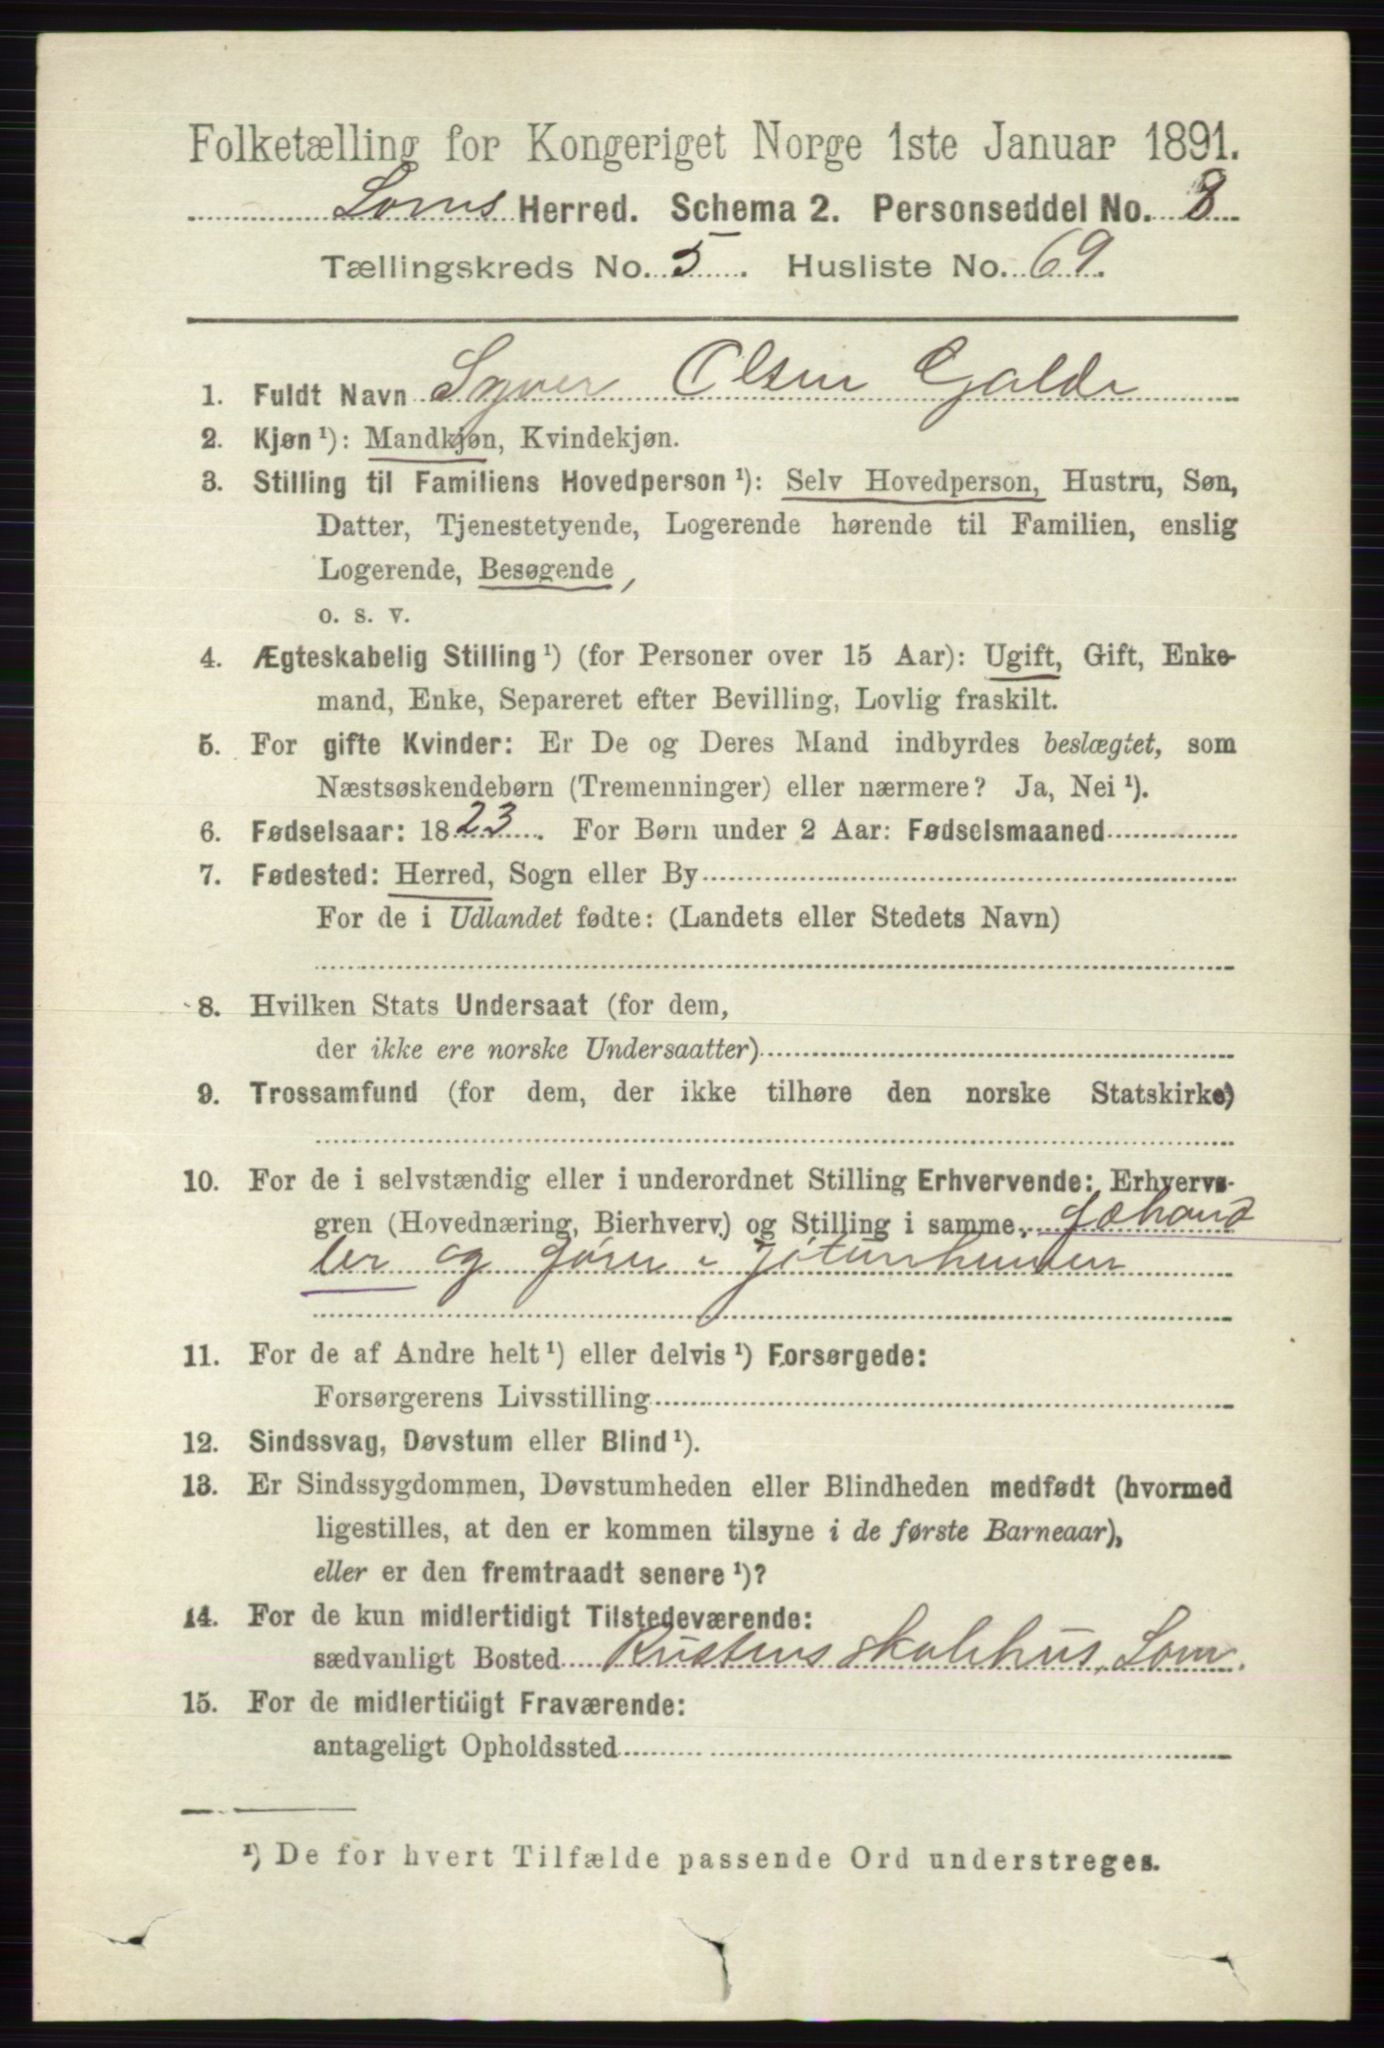 Folketælling for Kongeriget Norge 1ste Januar 1891.
Loms Herred. Schema 2. Personseddel No. 8
Tællingskreds No. 5. Husliste No. 69.
1. Fuldt Navn Syver Olsen Galde
2. Kjøn ¹): Mandkjøn, Kvindekjøn.
3. Stilling til Familiens Hovedperson ¹): Selv Hovedperson, Hustru, Søn,
Datter, Tjenestetyende, Logerende hørende til Familien, enslig
Logerende, Besøgende,
o. s. v.
4. Ægteskabelig Stilling ¹) (for Personer over 15 Aar): Ugift, Gift, Enke-
mand, Enke, Separeret efter Bevilling, Lovlig fraskilt.
5. For gifte Kvinder: Er De og Deres Mand indbyrdes beslægtet, som
Næstsøskendebørn (Tremenninger) eller nærmere? Ja, Nei ¹).
6. Fødselsaar: 1823. For Børn under 2 Aar: Fødselsmaaned
7. Fødested: Herred, Sogn eller By
For de i Udlandet fødte: (Landets eller Stedets Navn)
8. Hvilken Stats Undersaat (for dem,
der ikke ere norske Undersaatter)
9. Trossamfund (for dem, der ikke tilhøre den norske Statskirke)
10. For de i selvstændig eller i underordnet Stilling Erhvervende: Erhvervs-
gren (Hovednæring, Bierhverv) og Stilling i samme. Fæhand
ler og i Jotunheimen
11. For de af Andre helt ¹) eller delvis ¹) Forsørgede:
Forsørgerens Livsstilling
12. Sindssvag, Døvstum eller Blind ¹).
13. Er Sindssygdommen, Døvstumheden eller Blindheden medfødt (hvormed
ligestilles, at den er kommen tilsyne i de første Barneaar),
eller er den fremtraadt senere ¹)?
14. For de kun midlertidigt Tilstedeværende:
sædvanligt Bosted skolehus, Lom.
15. For de midlertidigt Fraværende:
antageligt Opholdssted
¹) De for hvert Tilfælde passende Ord understreges.